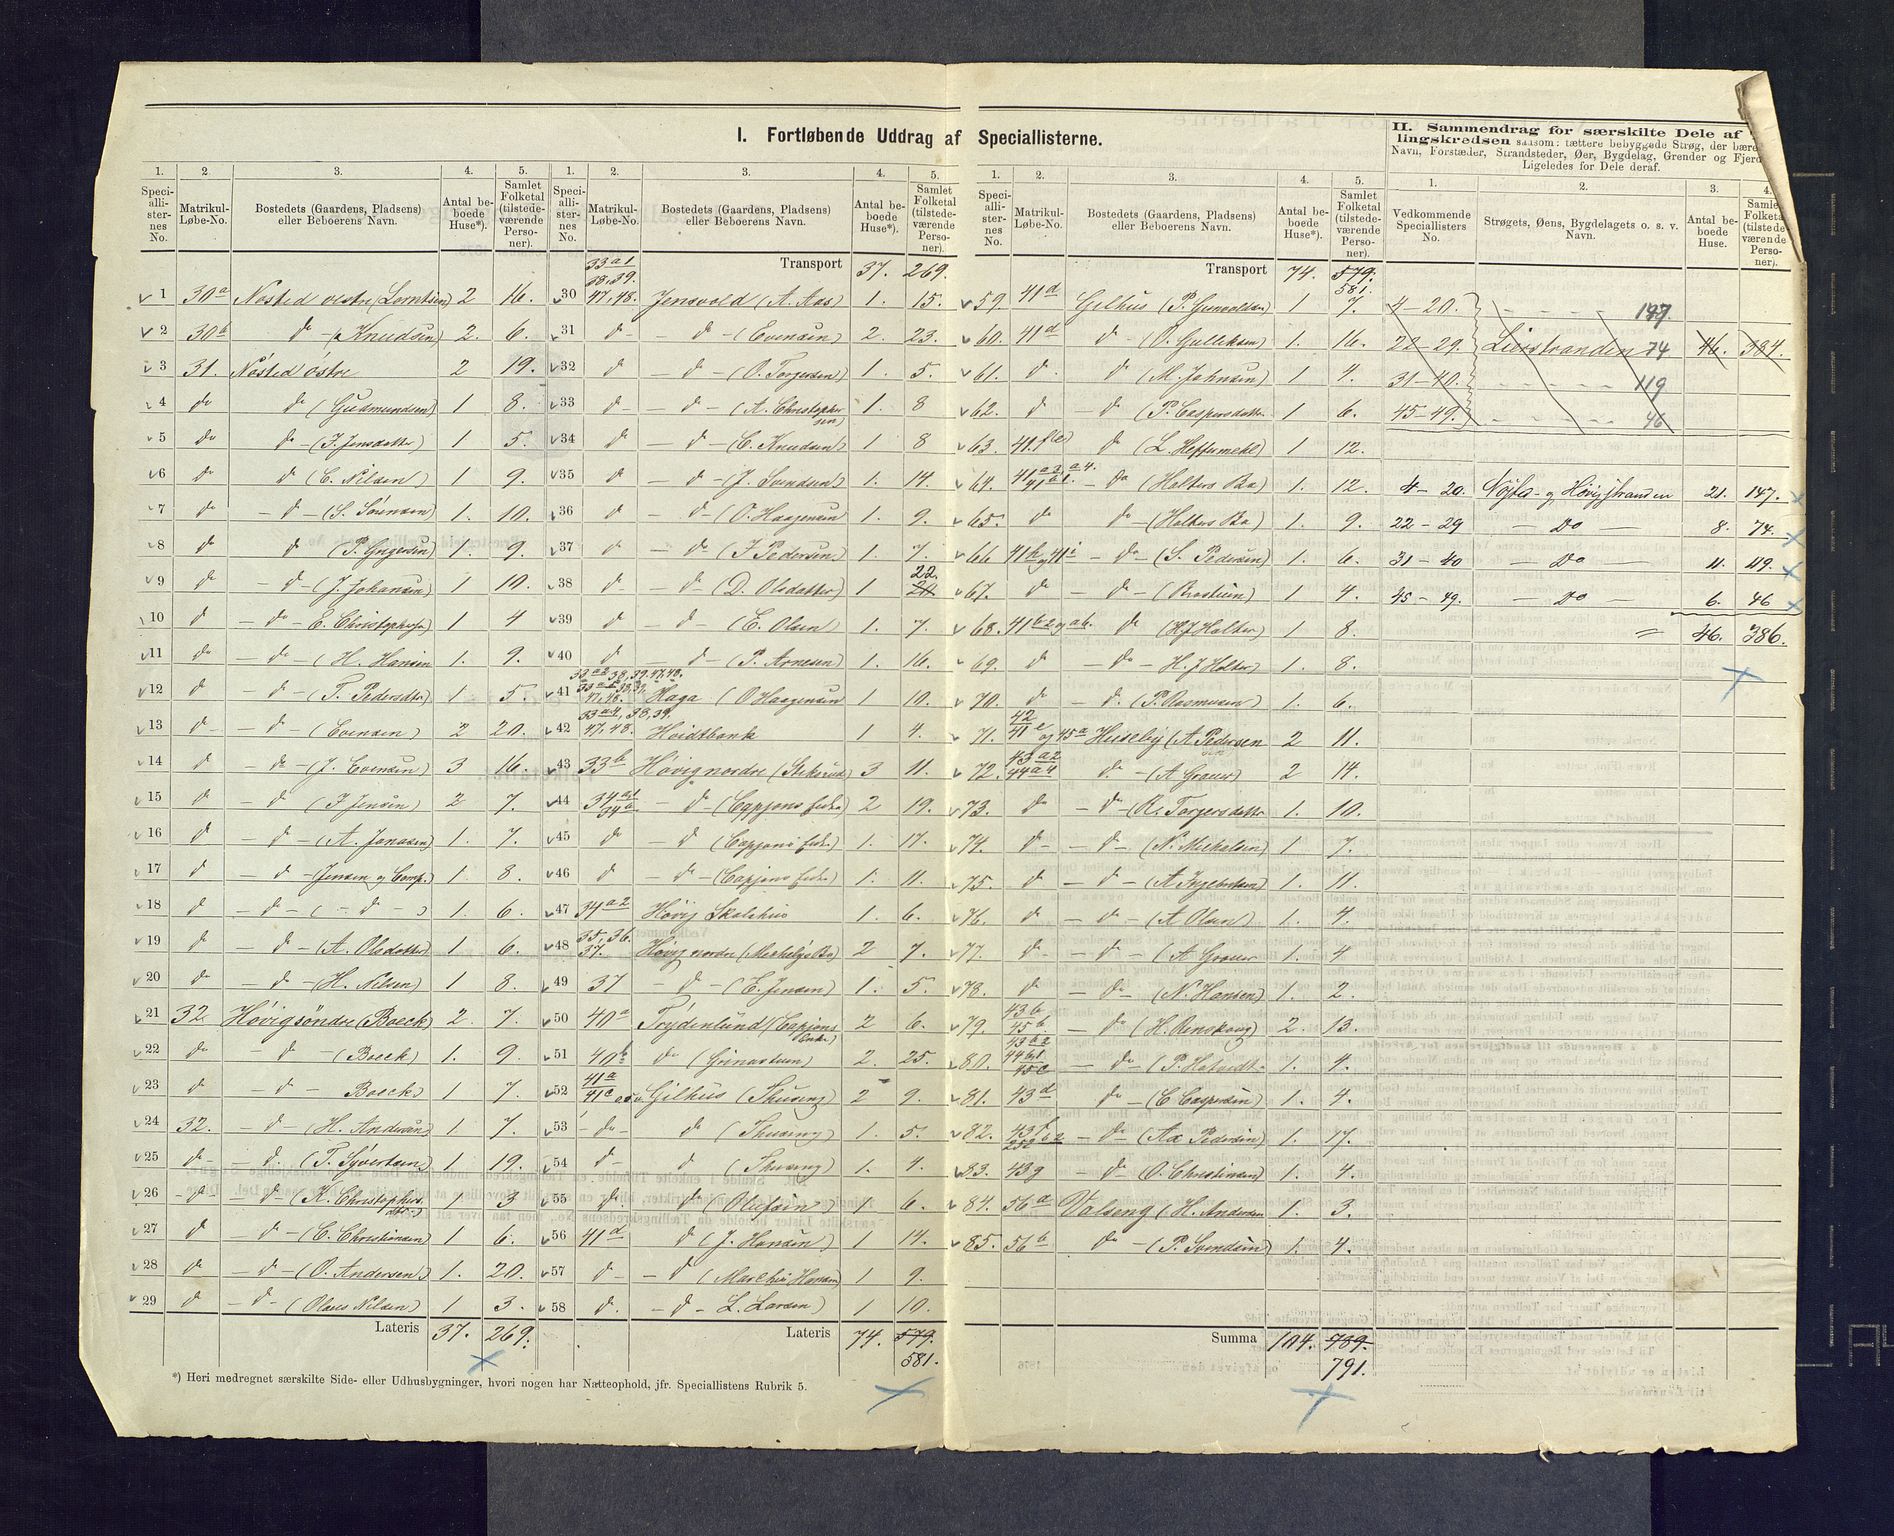 I. Fortløbende Uddrag af Speciallisterne.
1. 2. 3. 4. 5.
Speciallisternes No. Matrikul-Løbe-No. Bostedets (Gaardens, Pladsens) eller Beboerens Navn. Antal beboede Huse*). Samlet Folketal (tilstedeværende Personer).
1 30a Nøsted vestre (Lorntsen) 2 16.
2 30b do (Knudsen) 2. 6.
3 31. Nøsted østre 2 19.
4 do do (Gudmundsen) 1 8.
5 do do (J. Jensdatter) 1 5.
6 do do (C. Nilsen) 1 9.
7 do do (S. Sørensen) 1. 10.
8 do do (P. Grigersen) 1. 9.
9 do do (J. Johansen) 1 10.
10 do do E. Christophersen 1 4
11 do do (H. Hansen 1. 9.
12 do do (T. Pedersdtr) 1 5.
13 do do (Evensen) 2 20.
14 do do (J. Evensen) 3 16
15 do do (J Jensen) 2 7.
16 do do (A. Jonasen) 1. 7.
17 do do Jensen og Comp. 1. 8.
18 do do (do) 1. 6.
19 do do (A. Olsdatter) 1 6.
20 do do (H. Nilsen) 1 8.
21 32. Høvig søndre (Boeck) 2. 7.
22 do do (Boeck) 1. 9.
23 do do Boeck) 1 7.
24 32. do (H. Andersen) 1. 7
25 do do (T. Syvertsen) 1 19.
26 do do (K. Christophersdtr.) 1 3
27 do do (C. Christiansen) 1 6.
28 do do (O. Andersen) 1. 20.
29 do do (Olaus Nilsen) 1 3.
Lateris 37. 269.
*) Heri medregnet særskilte Side- eller Udhusbygninger, hvori nogen har Natteophold, jfr. Speciallistens Rubrik 5.
1. 2. 3. 4. 5.
Speciallisternes No. Matrikul-Løbe-No. Bostedets (Gaardens, Pladsens) eller Beboerens Navn. Antal beboede Huse*). Samlet Folketal (tilstedeværende Personer).
Transport 37. 269.
30 33a1 38, 39. 47, 48. Jensvold (A. Aas) 1. 15.
31 do do (Evensen) 2. 23.
32 do do (O. Torgersen) 1. 5.
33 do do (A. Christophersen) 1. 8
34 do do (C. Knudsen) 1 8
35 do do (J. Svendsen) 1. 14.
36 do do (O. Haagensen 1. 9.
37 do do (J Pedersen) 1. 7.
38 do do (D. Olsdatter) 1 22.
39 do do (E. Olsen 1. 7.
40 do do (P. Arnesen) 1. 16.
41 33a2 38, 39. 47, 48. Haga (O Haagensen 1 10.
42 33a4, 38, 39. 47, 48. Hvidtbank 1 4.
43 33b Høvig nordre (Stiksrud) 3 11.
44 34a1 34b do (Cappjens Enke) 2 19.
45 do do (Cappjens Enke) 1. 17.
46 do do (Cappjens Enke) 1. 11.
47 34a2 Høvig Skolehus 1 6.
48 35, 36. 37. Høvig nordre 2 7.
49 37 do (E. Jensen) 1. 5.
50 40a Frydenlund (Cappjens Enke) 2 6.
51 40b do 2. 25.
52 41a 41c Gilhus (Thuring) 2 9.
53 do do (Thuring) 1. 5.
54 do do (Thuring) 1. 4.
55 do. do (Olufsen) 1 6.
56 41d do (J. Hansen) 1 14.
57 do do 1 9.
58 do. do L. Larsen) 1 10.
Lateris 74. 579.
581.
1. 2. 3. 4. 5.
Speciallisternes No. Matrikul-Løbe-No. Bostedets (Gaardens, Pladsens) eller Beboerens Navn. Antal beboede Huse*). Samlet Folketal (tilstedeværende Personer).
Transport 74. 579.
581.
59. 41d Gilhus (P. Gunvoldsen) 1 7.
60. 41d do (O. Gulliksen) 1. 16.
61. do do (M. Johnsen) 1 4.
62. do do (P. Caspersdatter 1 6.
63. 41f do 1 12.
64. do (Holters Bo) 1. 12.
65. do do (Holters Bo) 1. 9.
66 41h og 41i do (S. Pedersen) 1. 6.
67. do do 1 4.
68. do (H J Holter) 1 8.
69. do do H. J. Holter) 1. 8.
70. do do. (P. Rasmusen) 1 6.
71. 42 41e og 45a Huseby (A Pedersen 2 11.
72. 43a2 44a4 do (A Graver) 2 14.
73. do do R. Torgersdatter 1. 10.
74. do do (N. Mickelsen) 1 7.
75. do do (A Ingebretsen) 1. 11.
76. do do (A Olsen) 1. 4.
77. do do (A Graver 1. 4
78. do do (N. Hansen) 1. 2.
79. 43b 45b. do 2. 13.
80. 43a3 44b1 45c do 1. 4.
81. 43d do (C Caspersen) 1. 4.
82. 43f do (Ax Pedersen) 1. 17.
83. 43g do (O. Christiansen) 1. 4.
84. 56a Valseng (H. Andersen 1. 3.
85. 56b do (P. Svendsen) 1. 4.
Summa 104. 789.
791.
II. Sammendrag for særskilte Dele af
lingskredsen saasom: tættere bebyggede Strøg, der bære
Navn, Forstæder, Strandsteder, Øer, Bygdelag, Grender og Fjerd
Ligeledes for Dele deraf.
1. 2. 3. 4.
Vedkommende Speciallisters No. Strøgets, Øens, Bygdelagets o. s. v. Navn. Antal beboede Huse. Samlet Folketal (tilstedeværende Personer).
4-20. 147.
22-29. Lierstranden 74 46. 384.
31-40. 119
45-49. 46
4-20. Nøste- og Høvigstranden 21. 147.
22-29 Do 8. 74.
31-40 Do 11. 119.
45-49. Do 6. 46
= 46. 386.